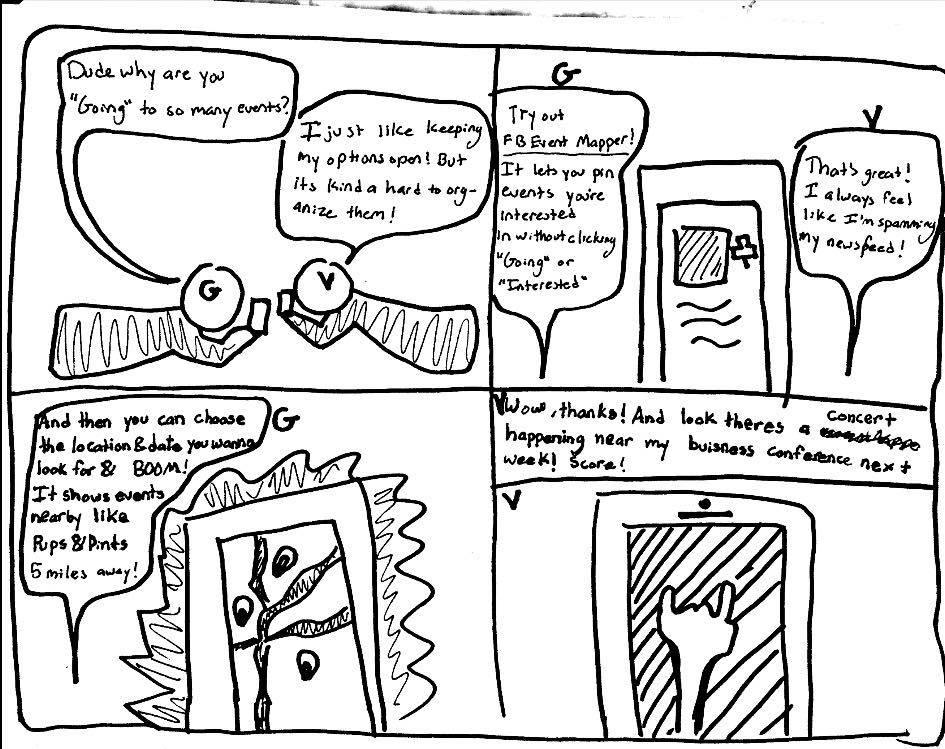 Dude why are you
"Going" to so many events?
I just like keeping
my options open! But
its kinda hard to org-
anize them!
G
V
G
Try out
FB Event Mapper!
It lets you pin
events you're
interested
in without clicking
"Going" or
"Interested"
V
That's great!
I always feel
like I'm spamming
my newsfeed!
G
And then you can choose
the location & date you wanna
look for & BOOM!
It shows events
nearby like
Pups & Pints
5 miles away!
V
Wow, thanks! And look theres a concert
happening near my buisness conference next
week! Score!
V